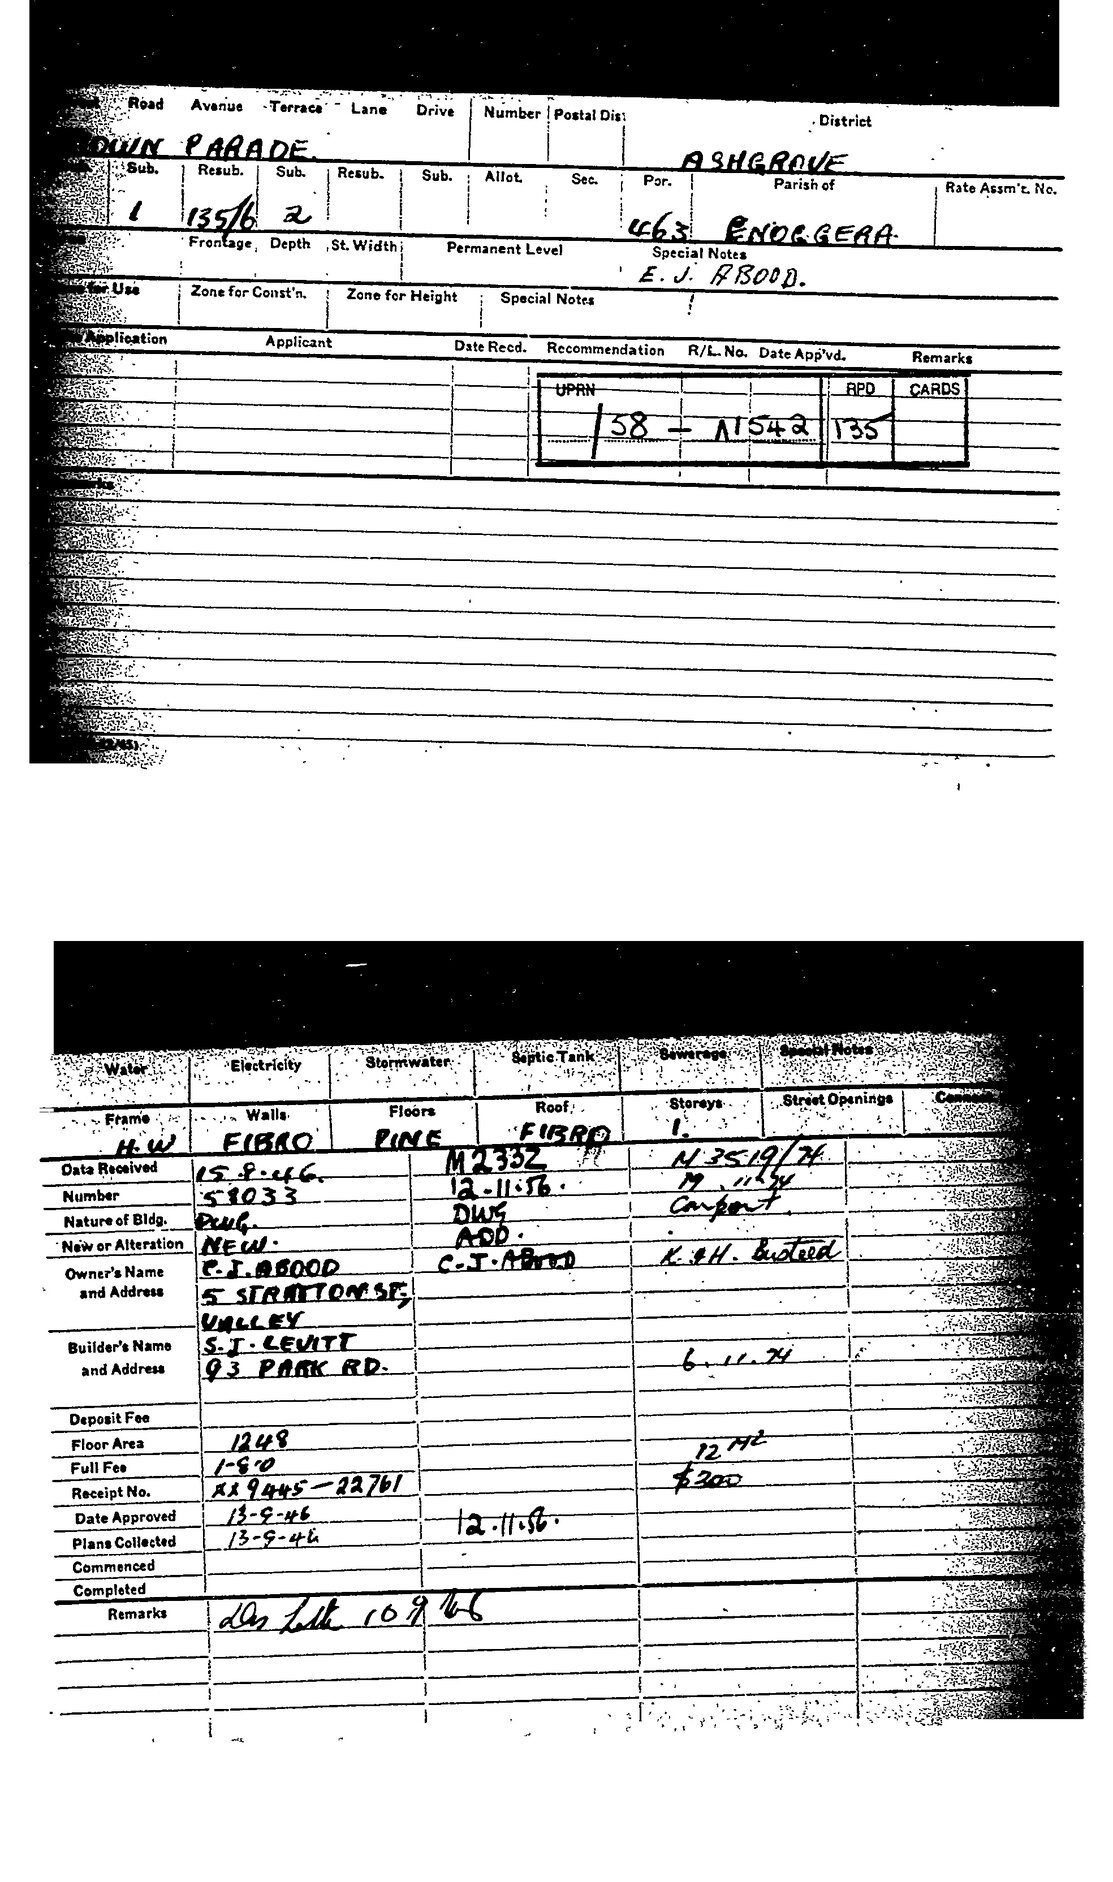 Road Avenue Terrace Lane Drive Number Postal Dis: District
OWN PARADE. ASHGROVE
Sub. Resub. Sub. Resub. Sub. Allot. Sec. Por. Parish of Rate Assm't. No.
1 135/6 2 463 ENOGGERA
Frontage Depth St. Width Permanent Level Special Notes
E. J. ABOOD.
for Use Zone for Const'n. Zone for Height Special Notes
Application Applicant Date Recd. Recommendation R/L. No. Date App'vd. Remarks
UPRN RPD CARDS
/58 - N1542 135
Water Electricity Stormwater Septic Tank Sewerage Special Notes
Frame Walls Floors Roof Storeys Street Openings
H.W FIBRO PINE FIBRO 1.
Data Received 15.8.46. M2332 M 3519/74
Number 58033 12.11.56. M .11.74
Nature of Bldg. DWG. DWG Carport.
New or Alteration NEW. ADD.
Owner's Name C.J. ABOOD C.J. ABOOD K. & H. Busteed
and Address 5 STRATTON ST,
VALLEY
Builder's Name S.J. LEVITT
and Address 93 PARK RD. 6.11.74
Deposit Fee
Floor Area 1248 12 M2
Full Fee 1-8-0 $300
Receipt No. 9445-22761
Date Approved 13-9-46 12.11.56.
Plans Collected 13-9-46
Commenced
Completed
Remarks 10 9 46